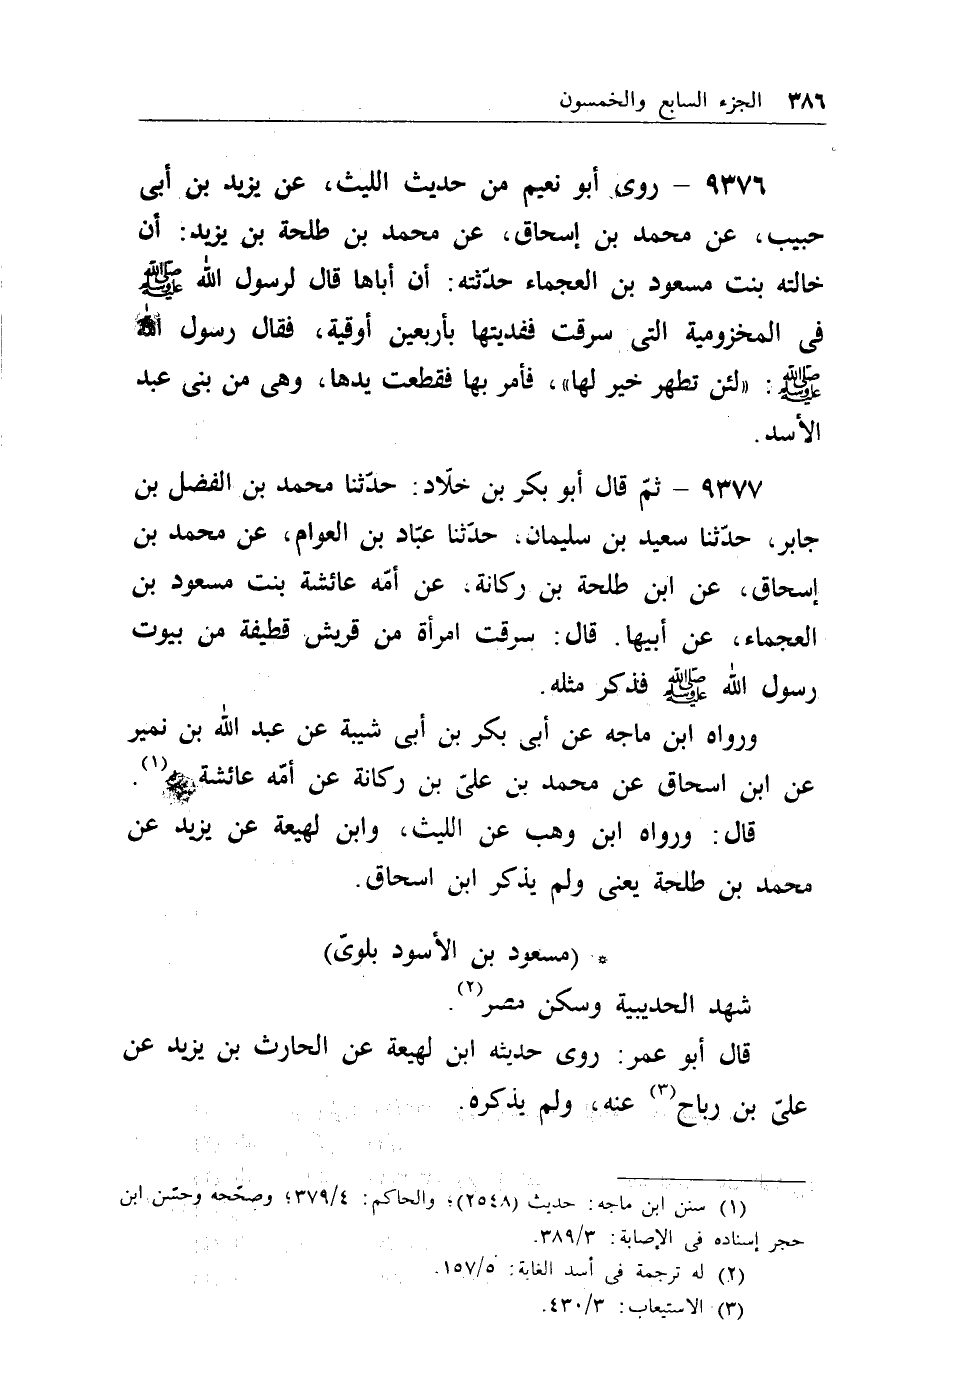 ٣٨٦ الجزء السابع والخمسون
٩٣٧٦ – روى أبو نعيم من حديث الليث، عن يزيد بن أبى
حبيب، عن محمد بن إسحاق، عن محمد بن طلحة بن يزيد: أن
خالته بنت مسعود بن العجماء حدّثته: أن أباها قال لرسول الله ﷺ
فى المخزومية التى سرقت ففديتها بأربعين أوقية، فقال رسول الله
ﷺ: «لئن تطهر خير لها»، فأمر بها فقطعت يدها، وهى من بنى عبد
الأسد.
٩٣٧٧ – ثمّ قال أبو بكر بن خلّاد: حدّثنا محمد بن الفضل بن
جابر، حدّثنا سعيد بن سليمان، حدّثنا عبّاد بن العوام، عن محمد بن
إسحاق، عن ابن طلحة بن ركانة، عن أمّه عائشة بنت مسعود بن
العجماء، عن أبيها. قال: سرقت امرأة من قريش قطيفة من بيوت
رسول الله ﷺ فذكر مثله.
ورواه ابن ماجه عن أبى بكر بن أبى شيبة عن عبد الله بن نمير
عن ابن اسحاق عن محمد بن علىّ بن ركانة عن أمّه عائشة (١).
قال: ورواه ابن وهب عن الليث، وابن لهيعة عن يزيد عن
محمد بن طلحة يعنى ولم يذكر ابن اسحاق.
* (مسعود بن الأسود بلوىّ)
شهد الحديبية وسكن مصر(٢).
قال أبو عمر: روى حديثه ابن لهيعة عن الحارث بن يزيد عن
علىّ بن رباح(٣) عنه، ولم يذكره.
(١) سنن ابن ماجه: حديث (٢٥٤٨)؛ والحاكم: ٣٧٩/٤؛ وصحّحه وحسّن ابن
حجر إسناده فى الإصابة: ٣٨٩/٣.
(٢) له ترجمة فى أسد الغابة: ١٥٧/٥.
(٣) الاستيعاب: ٤٣٠/٣.